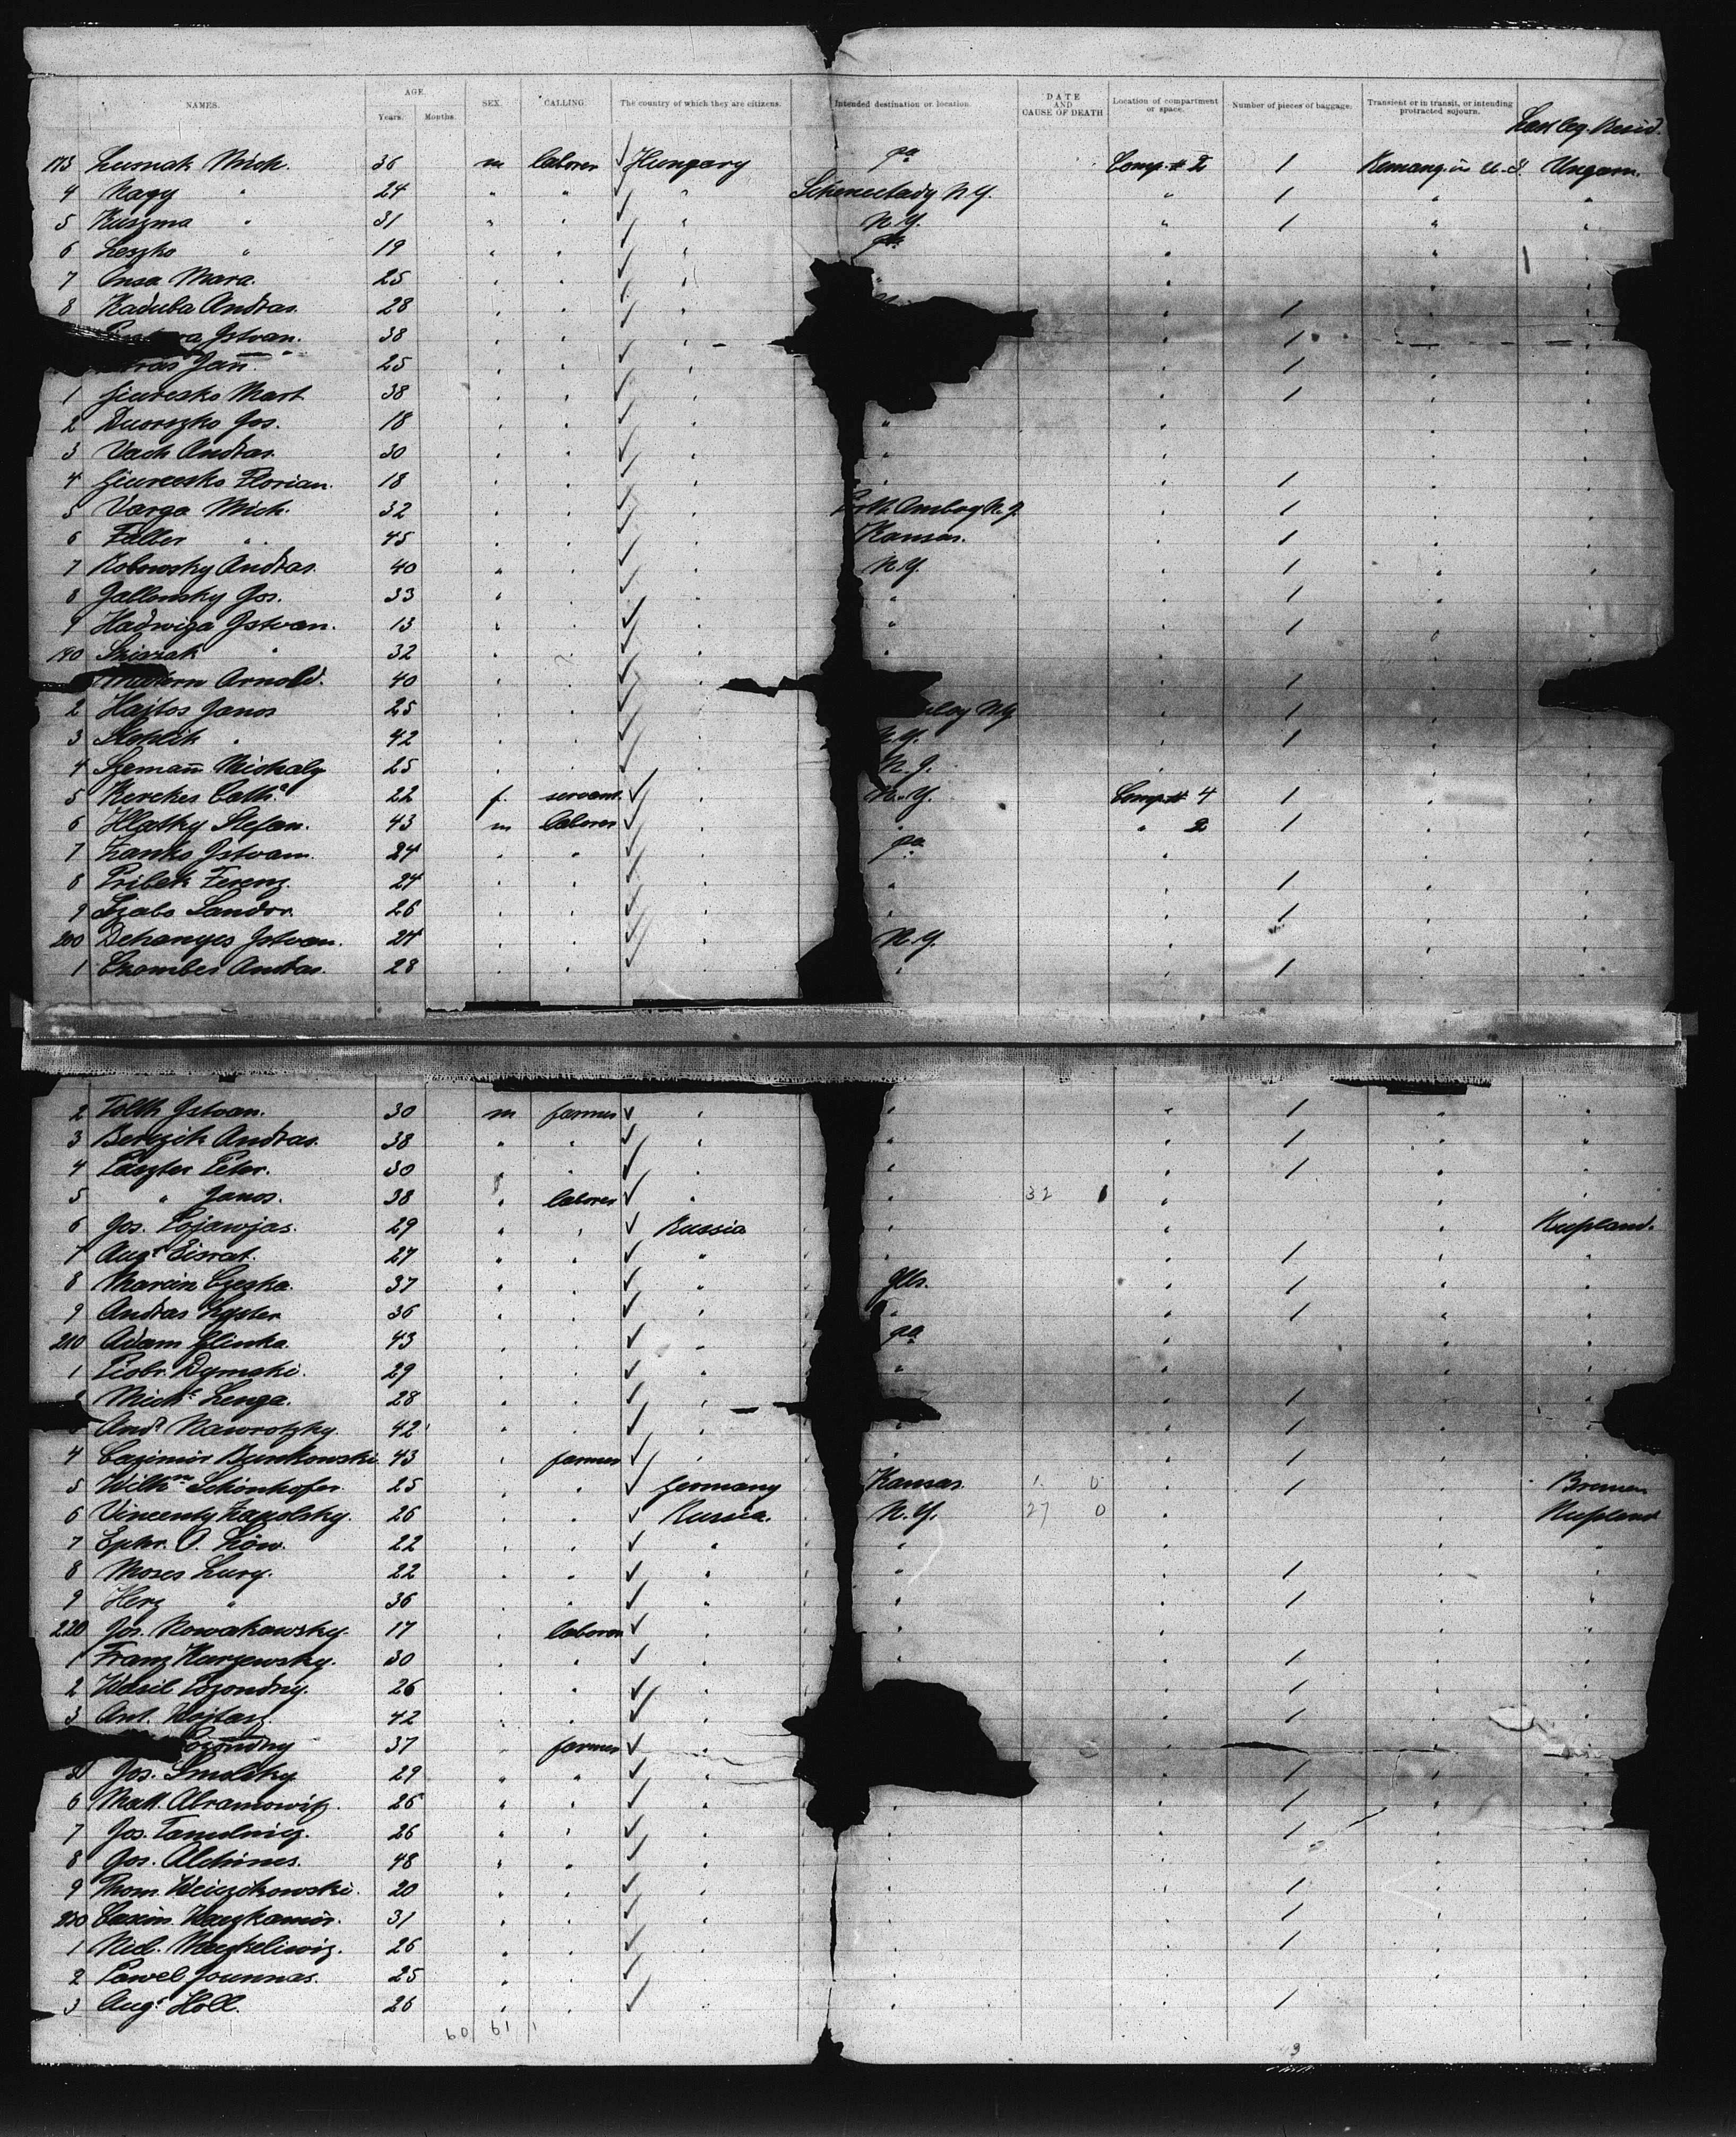 NAMES. AGE. Years. Months. SEX. CALLING. The country of which they are citizens. Intended destination or location. DATE AND CAUSE OF DEATH Location of compartment or space. Number of pieces of baggage. Transient or in transit, or intending protracted sojourn.
Last leg. Resid.
173 Lusnak Mich. 36 m laborer ✓ Hungary pa Comp. # 2 1 Remang. in U.S. Ungarn.
4 Nagy " 24 " " ✓ " Schenectady N.Y. " 1 " "
5 Kuszma " 31 " " ✓ " N.Y. " 1 " "
6 Leszko " 19 " " ✓ " pa " " "
7 Onsa Mara. 25 " " ✓ " " " "
8 Kaduba Andras. 28 " " ✓ " " 1 "
Istvan. 38 " " ✓ " " 1 "
Jan̄. 25 " " ✓ " " 1 " "
1 Giuresko Mart 38 " " ✓ " " 1 " "
2 Duorszko Jos. 18 " " ✓ " " " " "
3 Vach Andras. 30 " " ✓ " " " " "
4 Giuresko Florian. 18 " " ✓ " " " 1 " "
5 Varga Mich. 32 " " ✓ " Perth Amboy N.J. " 1 " "
6 Faller " 45 " " ✓ " Kansas. " 1 " "
7 Kobowsky Andras. 40 " " ✓ " N.Y. " 1 " "
8 Jallonsky Jos. 33 " " ✓ " " " 1 " "
9 Hadwiga Istvan. 13 " " ✓ " " " 1 " "
190 " 32 " " ✓ " " " " "
Arnold. 40 " " ✓ " " 1 "
2 Hajtos Janos 25 " " ✓ " " 1 " "
3 Stohlik " 42 " " ✓ " N.Y. " 1 " "
4 Szeman̄ Miskaly 25 " " ✓ " N.J. " " "
5 Kerekes Cath.ᵉ 22 f. servant ✓ " N.Y. Comp. # 4 1 " "
6 Hlatky Stefan. 43 m laborer ✓ " " " 2 1 " "
7 Zanko Istvan. 24 " " ✓ " pa " " "
8 Pribek Ferenz. 24 " " ✓ " " " 1 " "
9 Szabo Sandor. 26 " " ✓ " " " 1 " "
200 Dehanyes Istvan. 24 " " ✓ " N.Y. " 1 " "
1 Czomber Andras. 28 " " ✓ " " " 1 " "
2 Toth Istvan. 30 m farmer ✓ " " " 1 " "
3 Berezik Andras. 38 " " ✓ " " " 1 " "
4 Paezter Peter. 30 " " ✓ " " " 1 " "
5 " Janos. 38 " laborer ✓ " " 32 " " "
6 Jos. Pojawjas. 29 " " ✓ Russia " " " Rußland.
7 Augᵗ Eisrat. 27 " " ✓ " " " 1 " "
8 Marcin Czeska. 37 " " ✓ " Ills. " 1 " "
9 Andras Lyster 36 " " ✓ " " " 1 " "
210 Adam Glinka. 43 " " ✓ " pa " " "
1 Piotr. Dymski. 29 " " ✓ " " " " "
2 Michˡ Lenga. 28 " " ✓ " " 1 " "
Andʳ Nawrotzky. 42 " " ✓ " " " 1 "
4 Cazimir Bunkowski 43 " farmer ✓ " " " 1 " "
5 Wilhᵐ Schönhofer. 25 " " ✓ Germany Kansas. 1. 0 " 1 " Bremen
6 Vincenty Zapolsky. 26 " " ✓ Russia. N.Y. 27 0 " " Rußland
7 Ephr. O. Löw. 22 " " ✓ " " " " "
8 Moses Lury. 22 " " ✓ " " " 1 " "
9 Herz " 36 " " ✓ " " " 1 " "
220 Jos. Nowakowsky. 17 " laborer ✓ " " " " "
1 Franz Kurzewsky. 30 " " ✓ " " " 1 " "
2 Wasil Pozondny. 26 " " ✓ " " 1 " "
3 Ant. Wojtas. 42 " " ✓ " " 1 " "
Pozondny 37 " farmer ✓ " " " "
5 Jos. Smolsky 29 " " ✓ " " 1 " "
6 Matt. Abramowitz. 26 " " ✓ " " " 1 " "
7 Jos. Tamulniez. 26 " " ✓ " " " 1 " "
8 Jos. Alchimes. 48 " " ✓ " " " " "
9 Thom. Weiczikowski. 20 " " ✓ " " " 1 " "
230 Casim. Kazkamir. 31 " " ✓ " " " 1 " "
1 Nicl. Mazkeliwiz. 26 " " ✓ " " " 1 " "
2 Pawel Jounnas. 25 " " ✓ " " " " "
3 Augᵗ Holl. 26 " " ✓ " " 1 " "
60 61 1